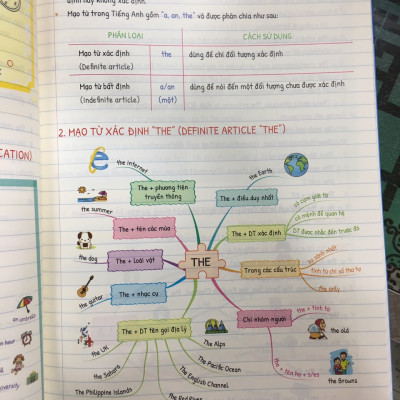 định hay không xác định.
Mạo từ trong Tiếng Anh gồm "a, an, the" và được phân chia như sau:
PHÂN LOẠI
CÁCH SỬ DỤNG
Mạo từ xác định
(Definite article)
the
dùng để chỉ đối tượng xác định
Mạo từ bất định
(Indefinite article)
a/an
(một)
dùng để nói đến một đối tượng chưa được xác định
2. MẠO TỪ XÁC ĐỊNH "THE" (DEFINITE ARTICLE "THE")
CATION)
the internet
The + phương tiện
truyền thông
the Earth
The + điều duy nhất
the summer
The + tên các mùa
có cụm giới từ
có mệnh đề quan hệ
The + DT xác định
DT được nhắc đến trước đó
the dog
The + Loài vật
THE
Trong các cấu trúc
so sánh nhất
tính từ chỉ số thứ tự
the only
the guitar
The + nhạc cụ
Chỉ nhóm người
the + tính từ
the old
the + tên họ + s/es
the Browns
The + DT tên gọi địa lý
the UK
the Sahara
The Philippine Islands
The Alps
The Pacific Ocean
The English Channel
The Red River
an umbrella
an hour
university